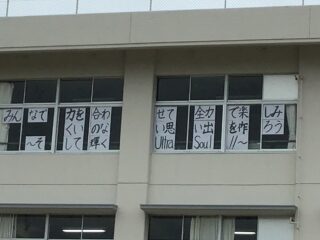 みんなで力を合わせて全力で楽しみ
くいのない思い出を作ろう
〜そして輝くUltra Soul!!〜